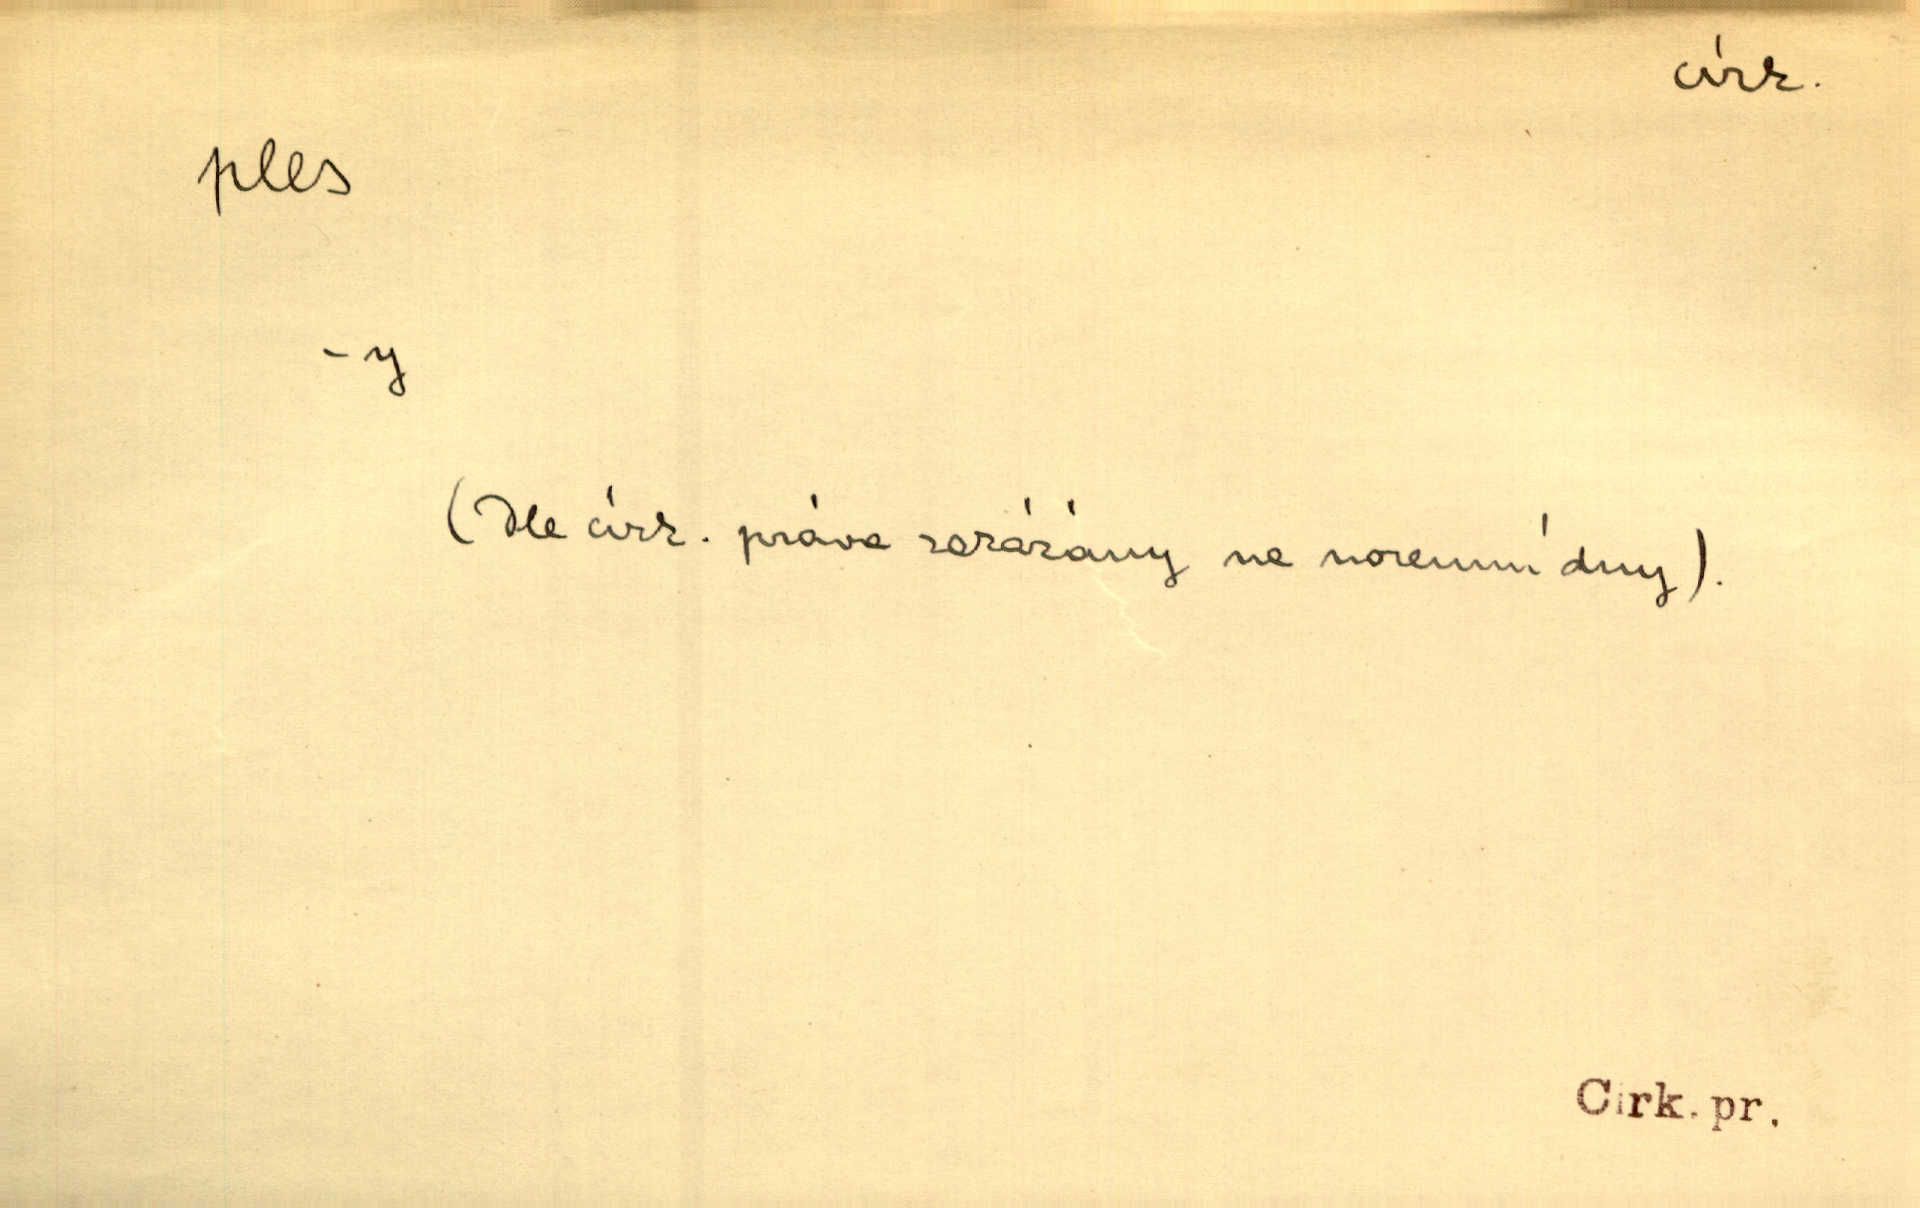 círk.
ples
-y
(Dle círk. práva zakázány na noremní dny).
Cirk. pr.